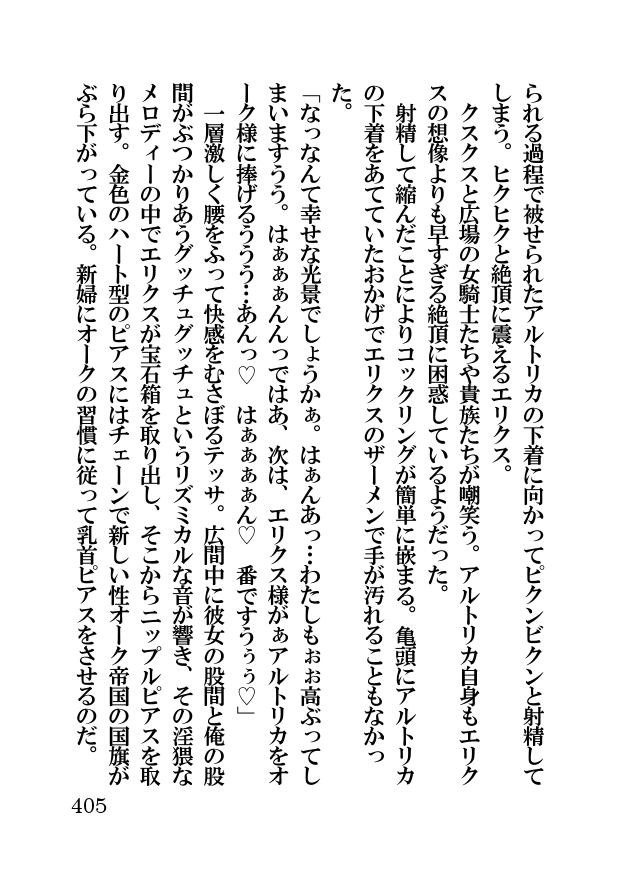 られる過程で被せられたアルトリカの下着に向かってピクンビクンと射精して
しまう。ヒクヒクと絶頂に震えるエリクス。
　クスクスと広場の女騎士たちや貴族たちが嘲笑う。アルトリカ自身もエリク
スの想像よりも早すぎる絶頂に困惑しているようだった。
　射精して縮んだことによりコックリングが簡単に嵌まる。亀頭にアルトリカ
の下着をあてていたおかげでエリクスのザーメンで手が汚れることもなかっ
た。
「なっなんて幸せな光景でしょうかぁ。はぁんあっ…わたしもぉぉ高ぶってし
まいますうう。はぁぁぁんんっではあ、次は、エリクス様がぁアルトリカをオ
ーク様に捧げるううう…あんっ♡　はぁぁぁぁん♡　番ですうぅぅ♡」
　一層激しく腰をふって快感をむさぼるテッサ。広間中に彼女の股間と俺の股
間がぶつかりあうグッチュグッチュというリズミカルな音が響き、その淫猥な
メロディーの中でエリクスが宝石箱を取り出し、そこからニップルピアスを取
り出す。金色のハート型のピアスにはチェーンで新しい性オーク帝国の国旗が
ぶら下がっている。新婦にオークの習慣に従って乳首ピアスをさせるのだ。
405